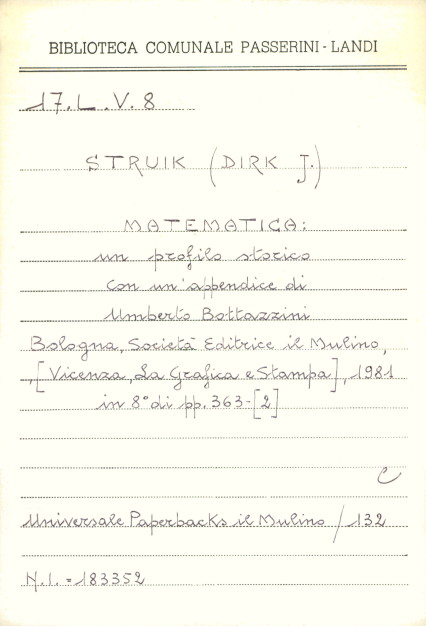 BIBLIOTECA COMUNALE PASSERINI - LANDI
17. L. V. 8
STRUIK (DIRK J.)
MATEMATICA:
un profilo storico
con un'appendice di
Umberto Bottazzini
Bologna, Società Editrice il Mulino,
, [Vicenza, La Grafica e Stampa], 1981
in 8° di pp. 363-[2]
C
Universale Paperbacks il Mulino / 132
N.I. = 183352